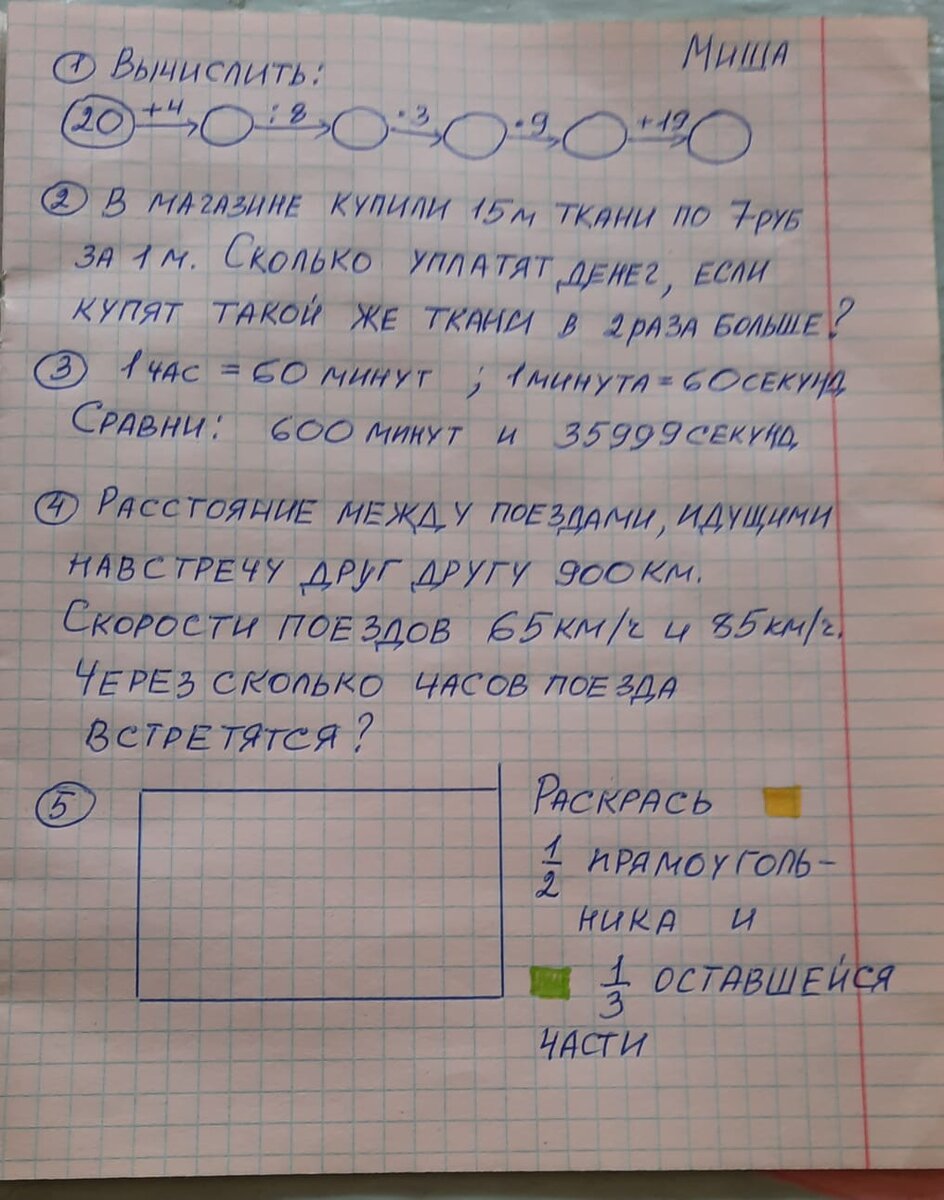 Миша
① Вычислить:
20 +4 : 8 · 3 · 9 +19
② В магазине купили 15 м ткани по 7 руб
за 1 м. Сколько уплатят денег, если
купят такой же ткани в 2 раза больше?
③ 1 час = 60 минут ; 1 минута = 60 секунд
Сравни: 600 минут и 35999 секунд
④ Расстояние между поездами, идущими
навстречу друг другу 900 км.
Скорости поездов 65 км/ч и 85 км/ч.
Через сколько часов поезда
встретятся?
⑤ Раскрась
1/2 прямоуголь-
ника и
1/3 оставшейся
части